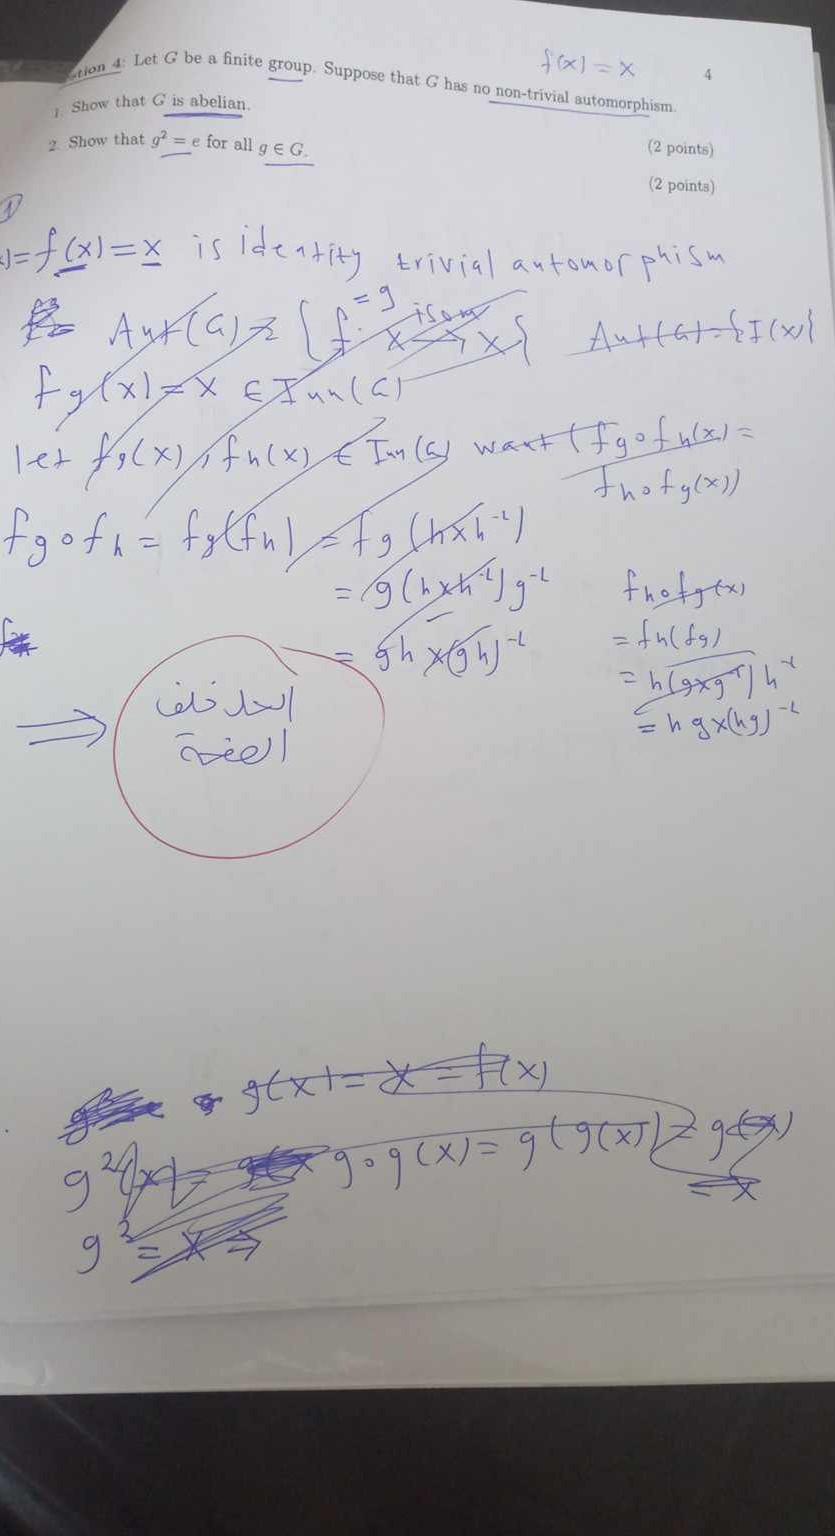 f(x) = x
4
tion 4: Let G be a finite group. Suppose that G has no non-trivial automorphism.
1. Show that G is abelian.
(2 points)
2. Show that g² = e for all g ∈ G.
(2 points)
1
)=f(x)=x is identity trivial automorphism
Aut(G) = { f=g: x → x } isom Aut(G)={I(x)}
fg(x)=x ∈ Inn(G)
let fg(x), fh(x) ∈ Inn(G) want (fg∘fh(x)=
fh∘fg(x))
fg∘fh = fg(fh) = fg(hxh⁻¹)
= g(hxh⁻¹)g⁻¹
= ghx(gh)⁻¹
fh∘fg(x)
= fh(fg)
= h(gxg⁻¹)h⁻¹
= hgx(hg)⁻¹
⇒ الحل خلف
الصفحة
g(x)=x=f(x)
g²(x)= g∘g(x)= g(g(x))= g(x)
= x
g² = x ⇒